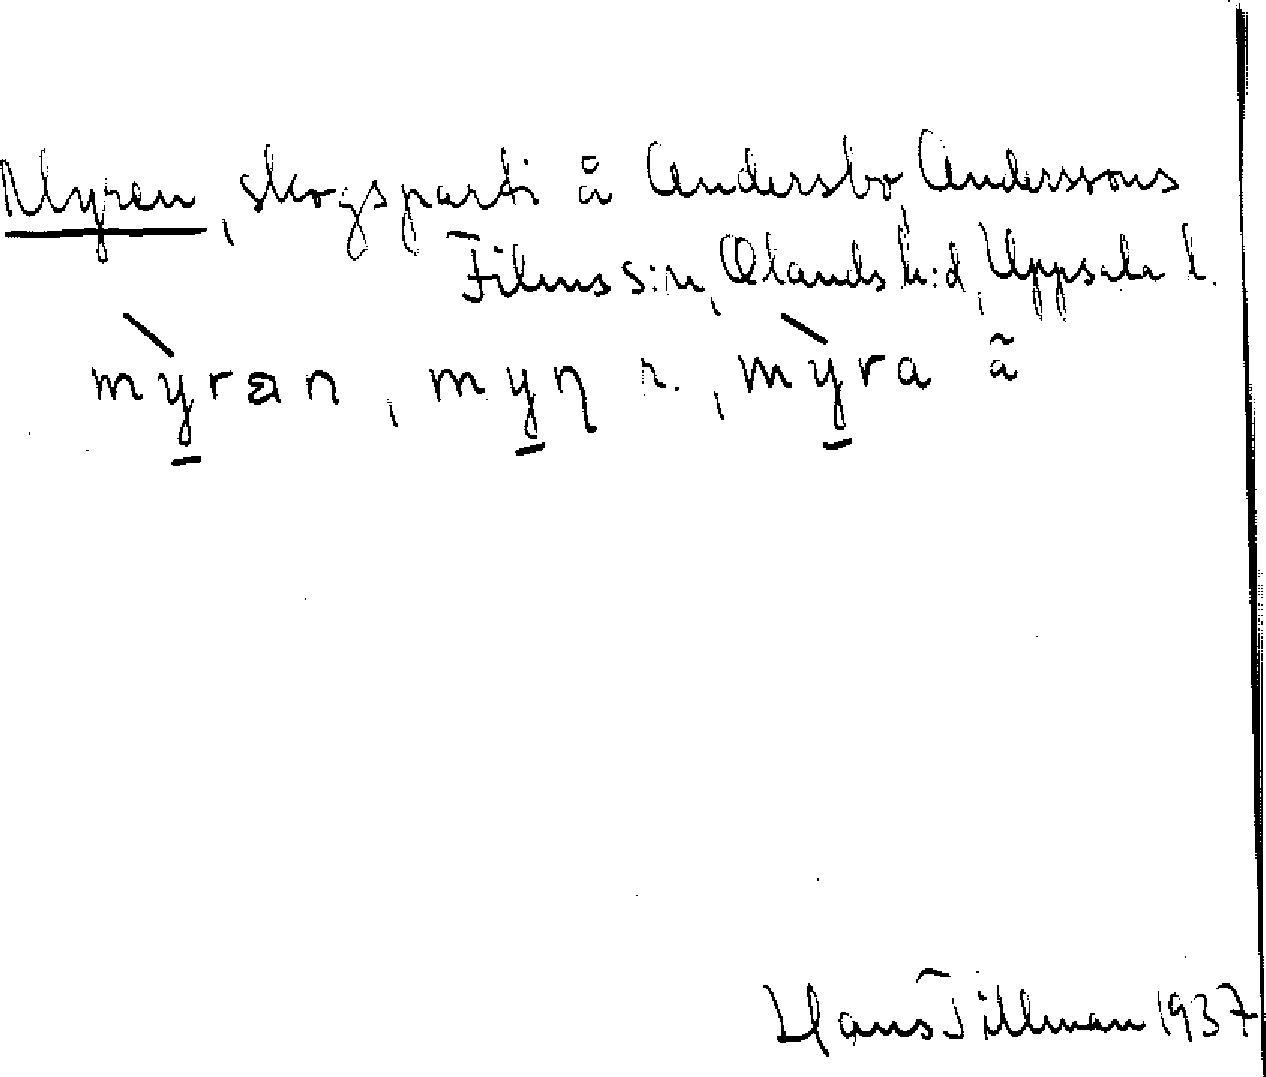 Myren, skogsparti å Andersbo, Anderssons
Films s:n, Olands h:d, Uppsala l.
mỳrən, myn r., mỳra ã
Hans Tillman 1937